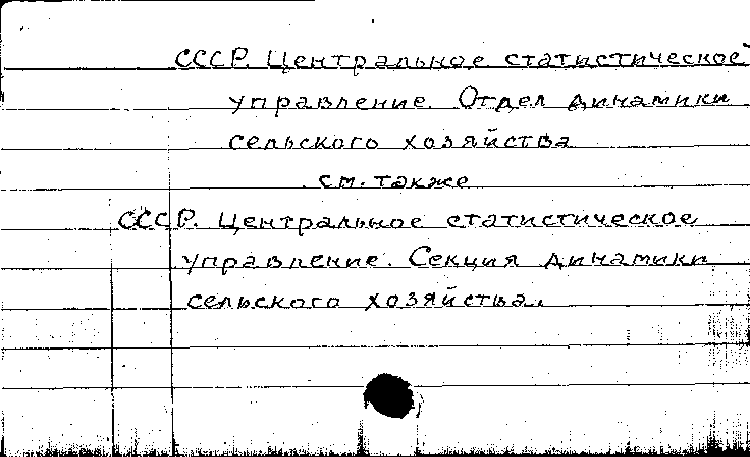 СССР. Центральное статистическое
управление. Отдел динамики
сельского хозяйства
см. также
СССР. Центральное статистическое
управление. Секция динамики
сельского хозяйства.